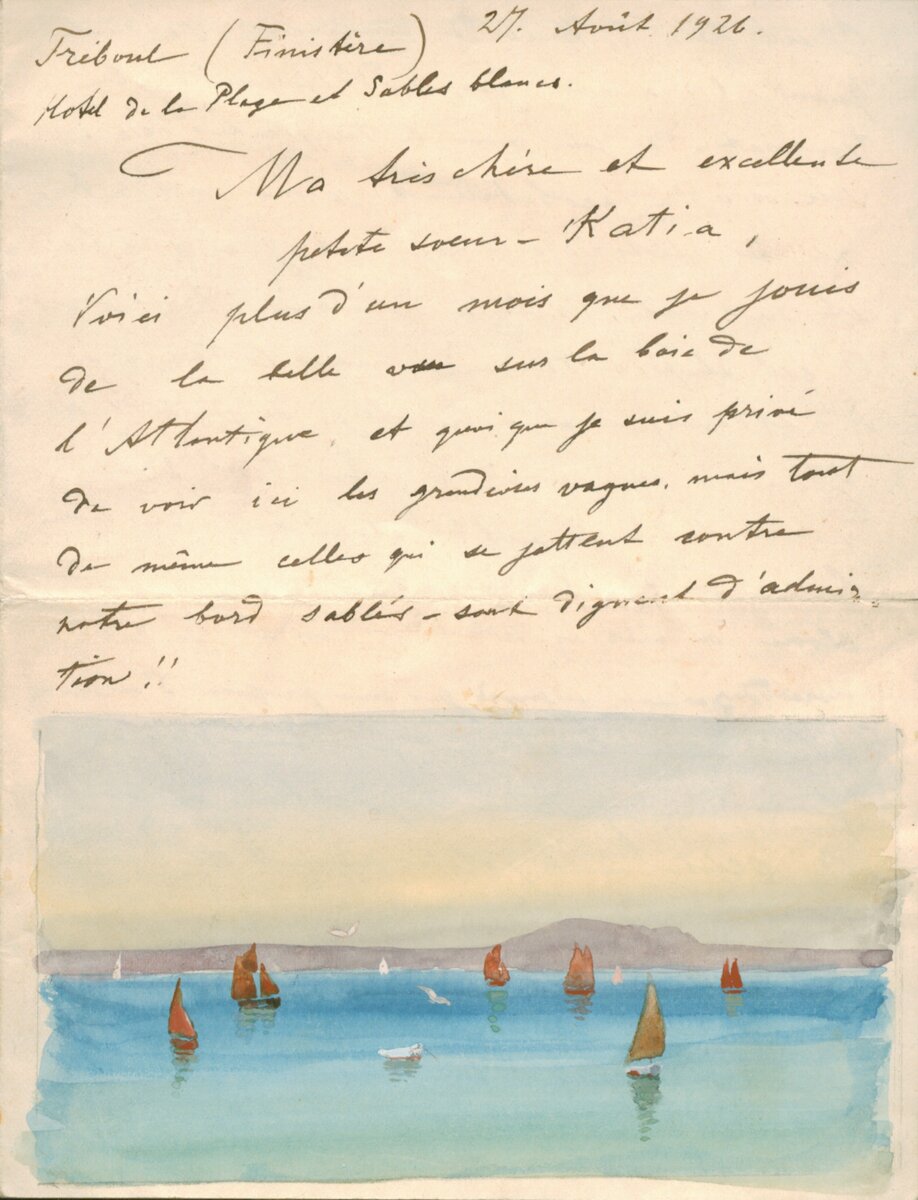 Tréboul (Finistère) 27. Août 1926.
Hotel de la Plage et Sables blancs.
Ma très chère et excellente
petite soeur - Katia,
Voici plus d'un mois que je jouis
de la belle vue sur la baie de
l'Atlantique, et quoi que je suis privé
de voir ici les grandioses vagues, mais tout
de même celles qui se jettent contre
notre bord sablés - sont dignent d'admira-
tion!!